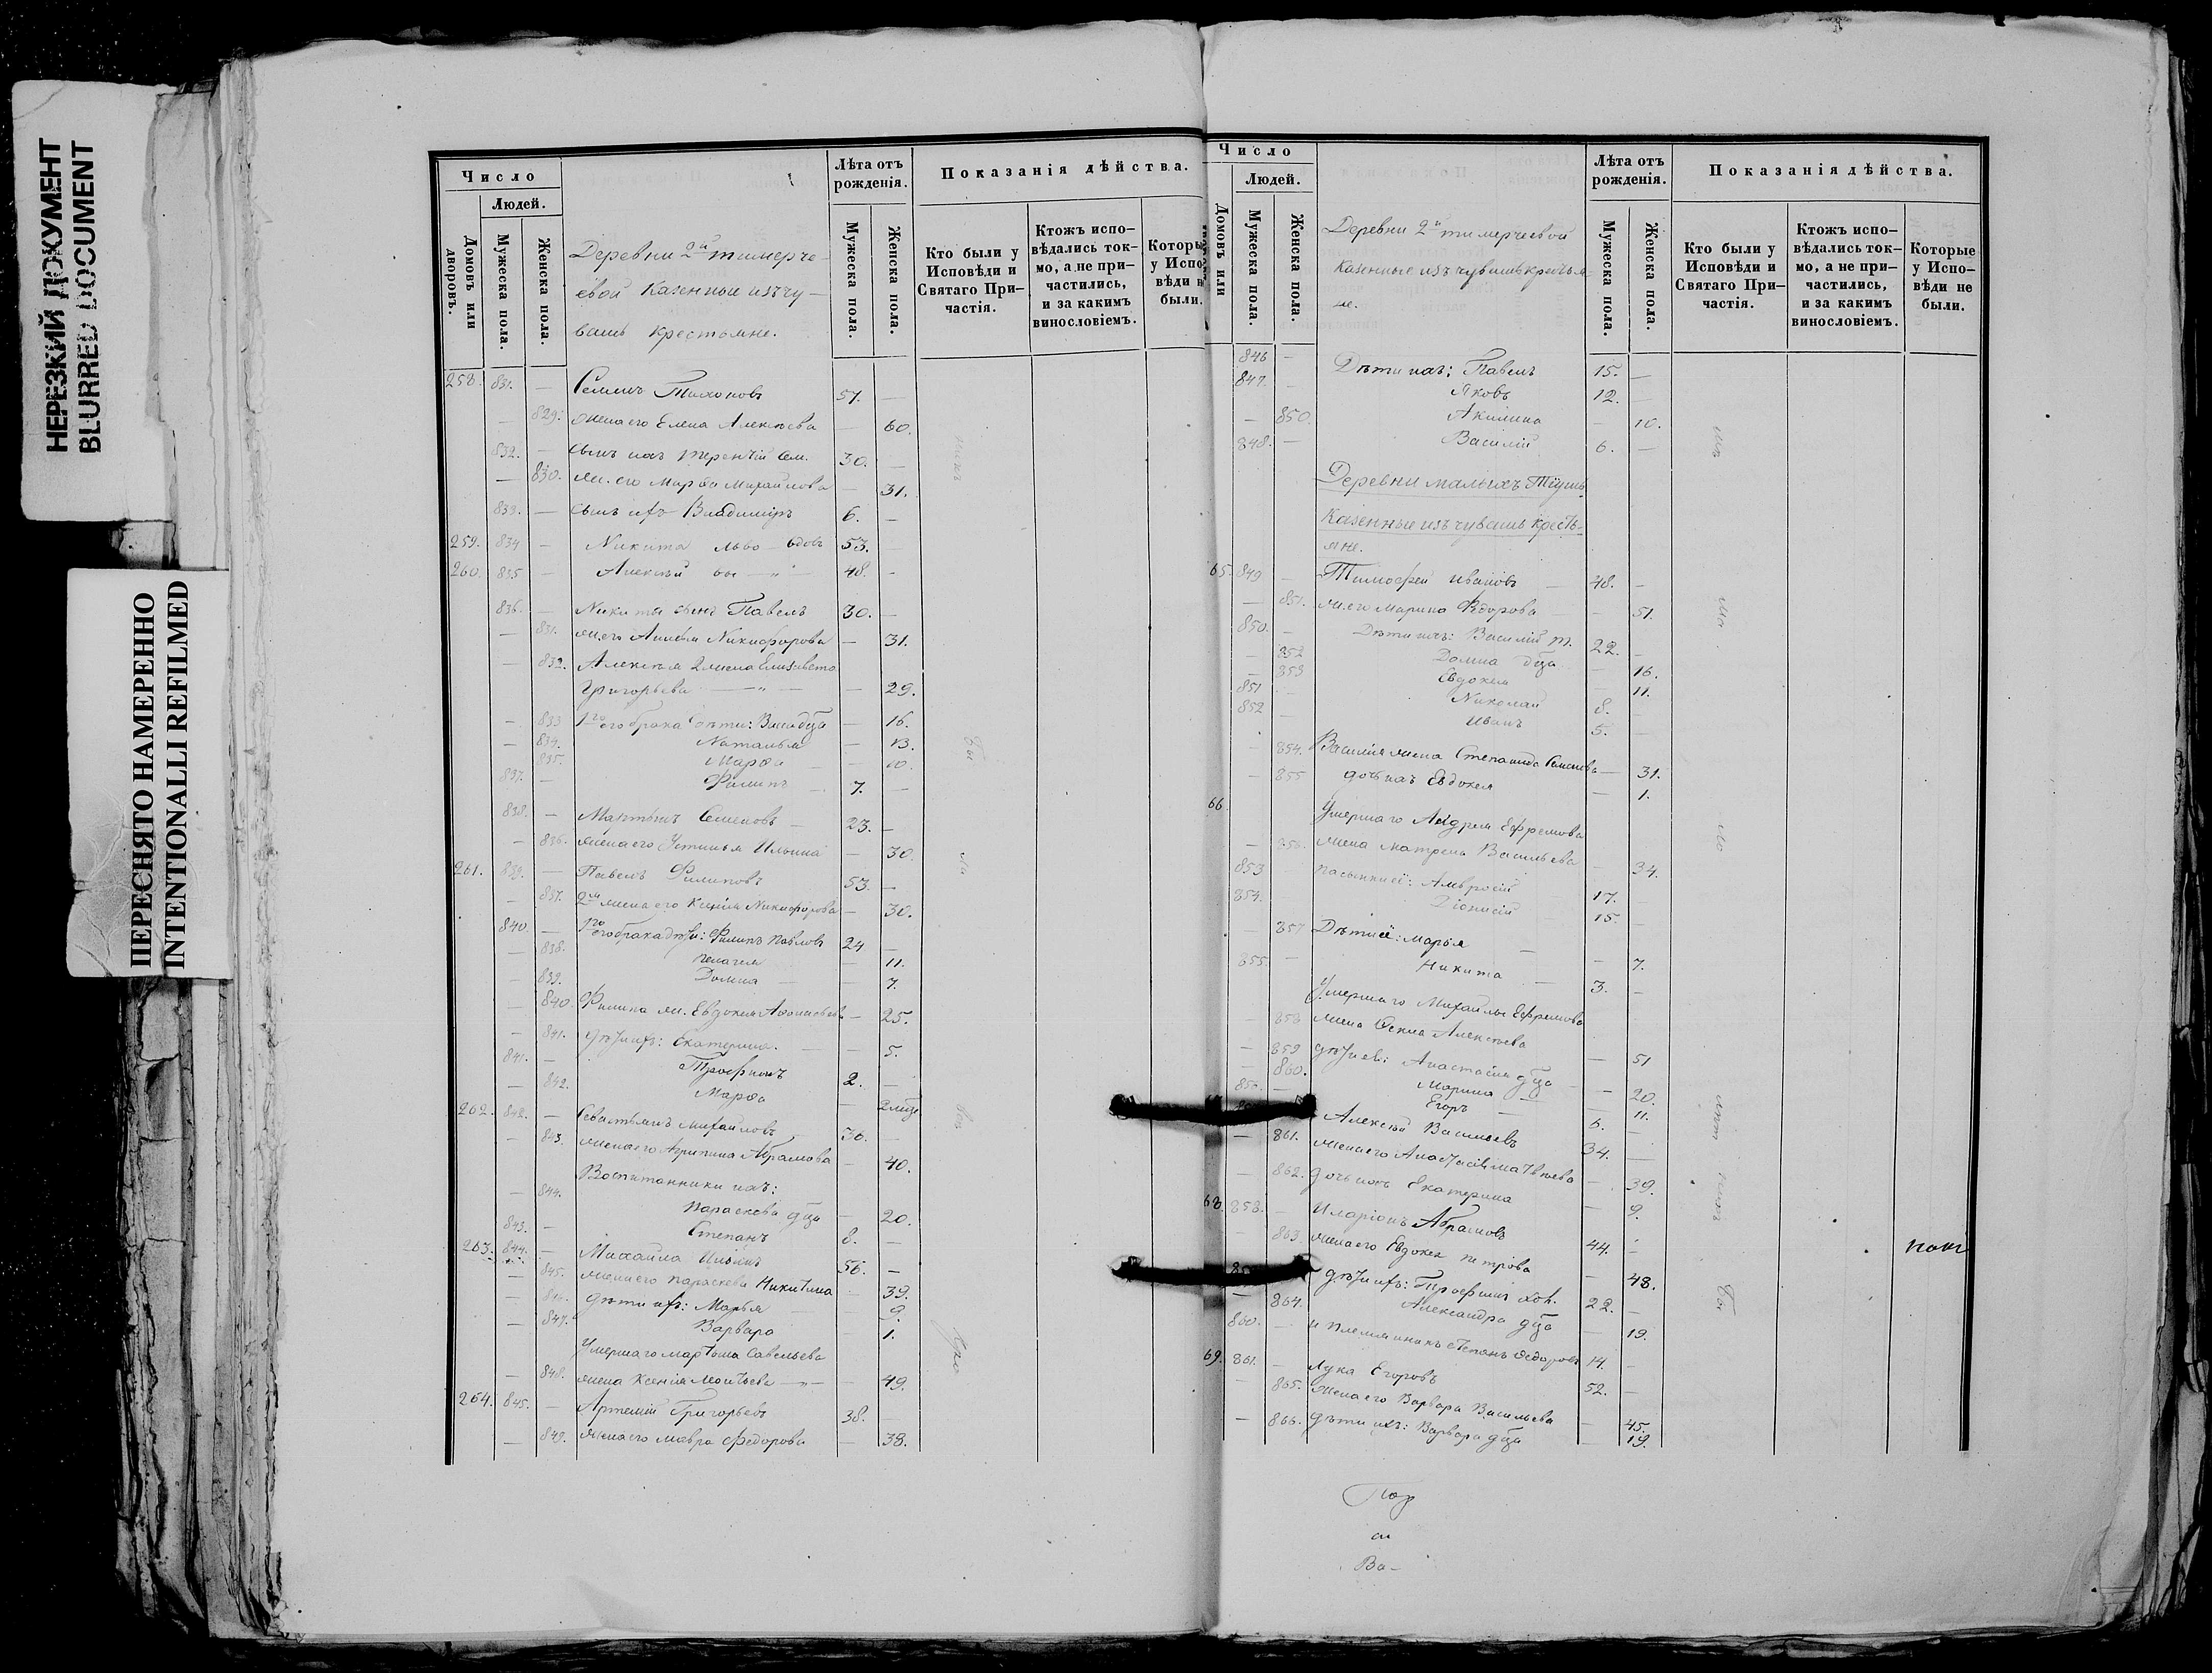 НЕРЕЗКИЙ ДОКУМЕНТ
BLURRED DOCUMENT
ПЕРЕСНЯТО НАМЕРЕННО
INTENTIONALLI REFILMED
Число
Людей.
Домовъ или дворовъ.
Мужеска пола.
Женска пола.
Деревни 2й тимерче-
евой Казенные изъ чу-
вашъ крестьяне.
Лѣта отъ рожденія.
Мужеска пола.
Женска пола.
Показанія дѣйства.
Кто были у Исповѣди и Святаго При-частія.
Ктожъ испо-вѣдались ток-мо, а не при-частились, и за какимъ винословіемъ.
Которы у Испо вѣди н были.
258. 831. — Семенъ Тихоновъ 57. —
— 829. Жена его Елена Алексѣева — 60.
832. — Сынъ ихъ Терентій Сем. 30. —
— 830. Ж. его Марѳа Михайлова — 31.
833. — Сынъ ихъ Владиміръ 6. —
259. 834 — Никита льво вдовъ 53. —
260. 835 — Алексѣй 48. —
836. — Никиты сынъ Павелъ 30. —
— 831. Ж. его Никифорова — 31.
— 832. Алексѣя 2 жена Елизавета
Григорьева — 29.
— 833 1го его брака дѣти: дца — 16.
— 834. Наталья — 13.
— 835. Марѳа — 10.
837. — Филипъ 7. —
838. — Мартынъ Семеновъ 23. —
— 836. жена его Устинья Ильина — 30.
261. 839. — Павелъ Филиповъ 53. —
— 837. 2я жена его Ксенія Никифорова — 30.
840. — 1го его брака дѣти: Филипъ Павловъ 24 —
— 838. Пелагея — 11.
— 839. Домна — 7.
— 840. Филипа ж. Евдокея — 25.
— 841. дѣти ихъ: Екатерина. — 5.
841. — Трофимъ 2. —
— 842. Марѳа —
262. 842. — Севастьянъ Михайловъ 36. —
— 843. жена его Агрипина Абрамова — 40.
Воспитанники ихъ:
— 844. Параскева дца — 20.
843. — Степанъ 8. —
263. 844. — Михайла Ильинъ 56. —
— 845. жена его Параскева Никитина — 39.
— 846. дѣти ихъ: Марья — 9.
— 847. Варвара 1.
Умершаго Мартына Савельева
— 848. жена Ксенія — 49.
264. 845. — Артемій Григорьевъ 38. —
— 849. жена его Мавра Федорова — 38.
Число
Людей.
Домовъ или
Мужеска пола.
Женска пола.
Деревни 2й тимерчеевой
Казенные изъ чувашъ крестья-
не.
Лѣта отъ рожденія.
Мужеска пола.
Женска пола.
Показанія дѣйства.
Кто были у Исповѣди и Святаго При-частія.
Ктожъ испо-вѣдались ток-мо, а не при-частились, и за какимъ винословіемъ.
Которые у Испо-вѣди не были.
846 — Дѣти ихъ: Павелъ 15. —
847. — Яковъ 12. —
— 850. Акилина — 10.
848. — Василій 6. —
Деревни малыхъ
Казенные изъ чувашъ кресть-
яне.
65. 849 — Тимофей Ивановъ 48. —
— 851. Ж. его Марина Ѳедорова — 51.
850. — Дѣти ихъ: Василій Т. 22. —
— 852 Домна дца — 16.
— 853 Евдокея — 11.
851 — Николай 8. —
852 Иванъ 5. —
— 854. Василія жена Степанида Семенова — 31.
— 855 дочь ихъ Евдокея — 1.
66. Умершаго Андрея Ефремова
— 856. Жена Матрена Васильева — 34.
853 — пасынки её: Амвросій 17. —
854. — Діонисій 15. —
— 857 Дѣти её: Марья — 7.
855. — Никита 3. —
Умершаго Михайлы Ефремова
— 858 жена Ѳекла Алексѣева — 51
— 859 дѣти её: Анастасія дца — 20.
— 860. Марина — 11.
856. — Егоръ 6. —
Алексѣй Васильевъ 34. —
— 861. Жена его Анастасія Матвѣева — 39.
— 862. дочь ихъ Екатерина — 9.
68. 858. — Иларіонъ Абрамовъ 44. —
— 863. жена его Евдокея Петрова — 48.
дѣти ихъ: Трофимъ хол. 22. —
— 864. Александра дца — 19.
860. — и племянникъ Степанъ Ѳедоровъ 14. —
69. 861. — Лука Егоровъ 52. —
— 865. Жена его Варвара Васильева — 45.
— 866. дѣти ихъ: Варвара дца — 19.
Ва-